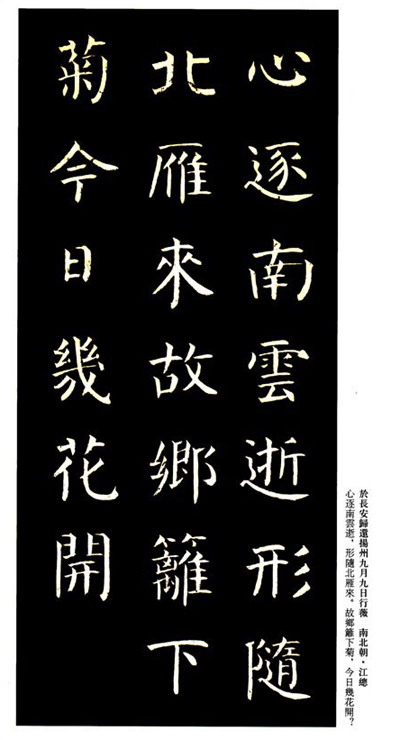 心逐南雲逝形隨
北雁來故鄉籬下
菊今日幾花開
於長安歸還揚州九月九日行薇　南北朝・江總
心逐南雲逝，形隨北雁來。故鄉籬下菊，今日幾花開？